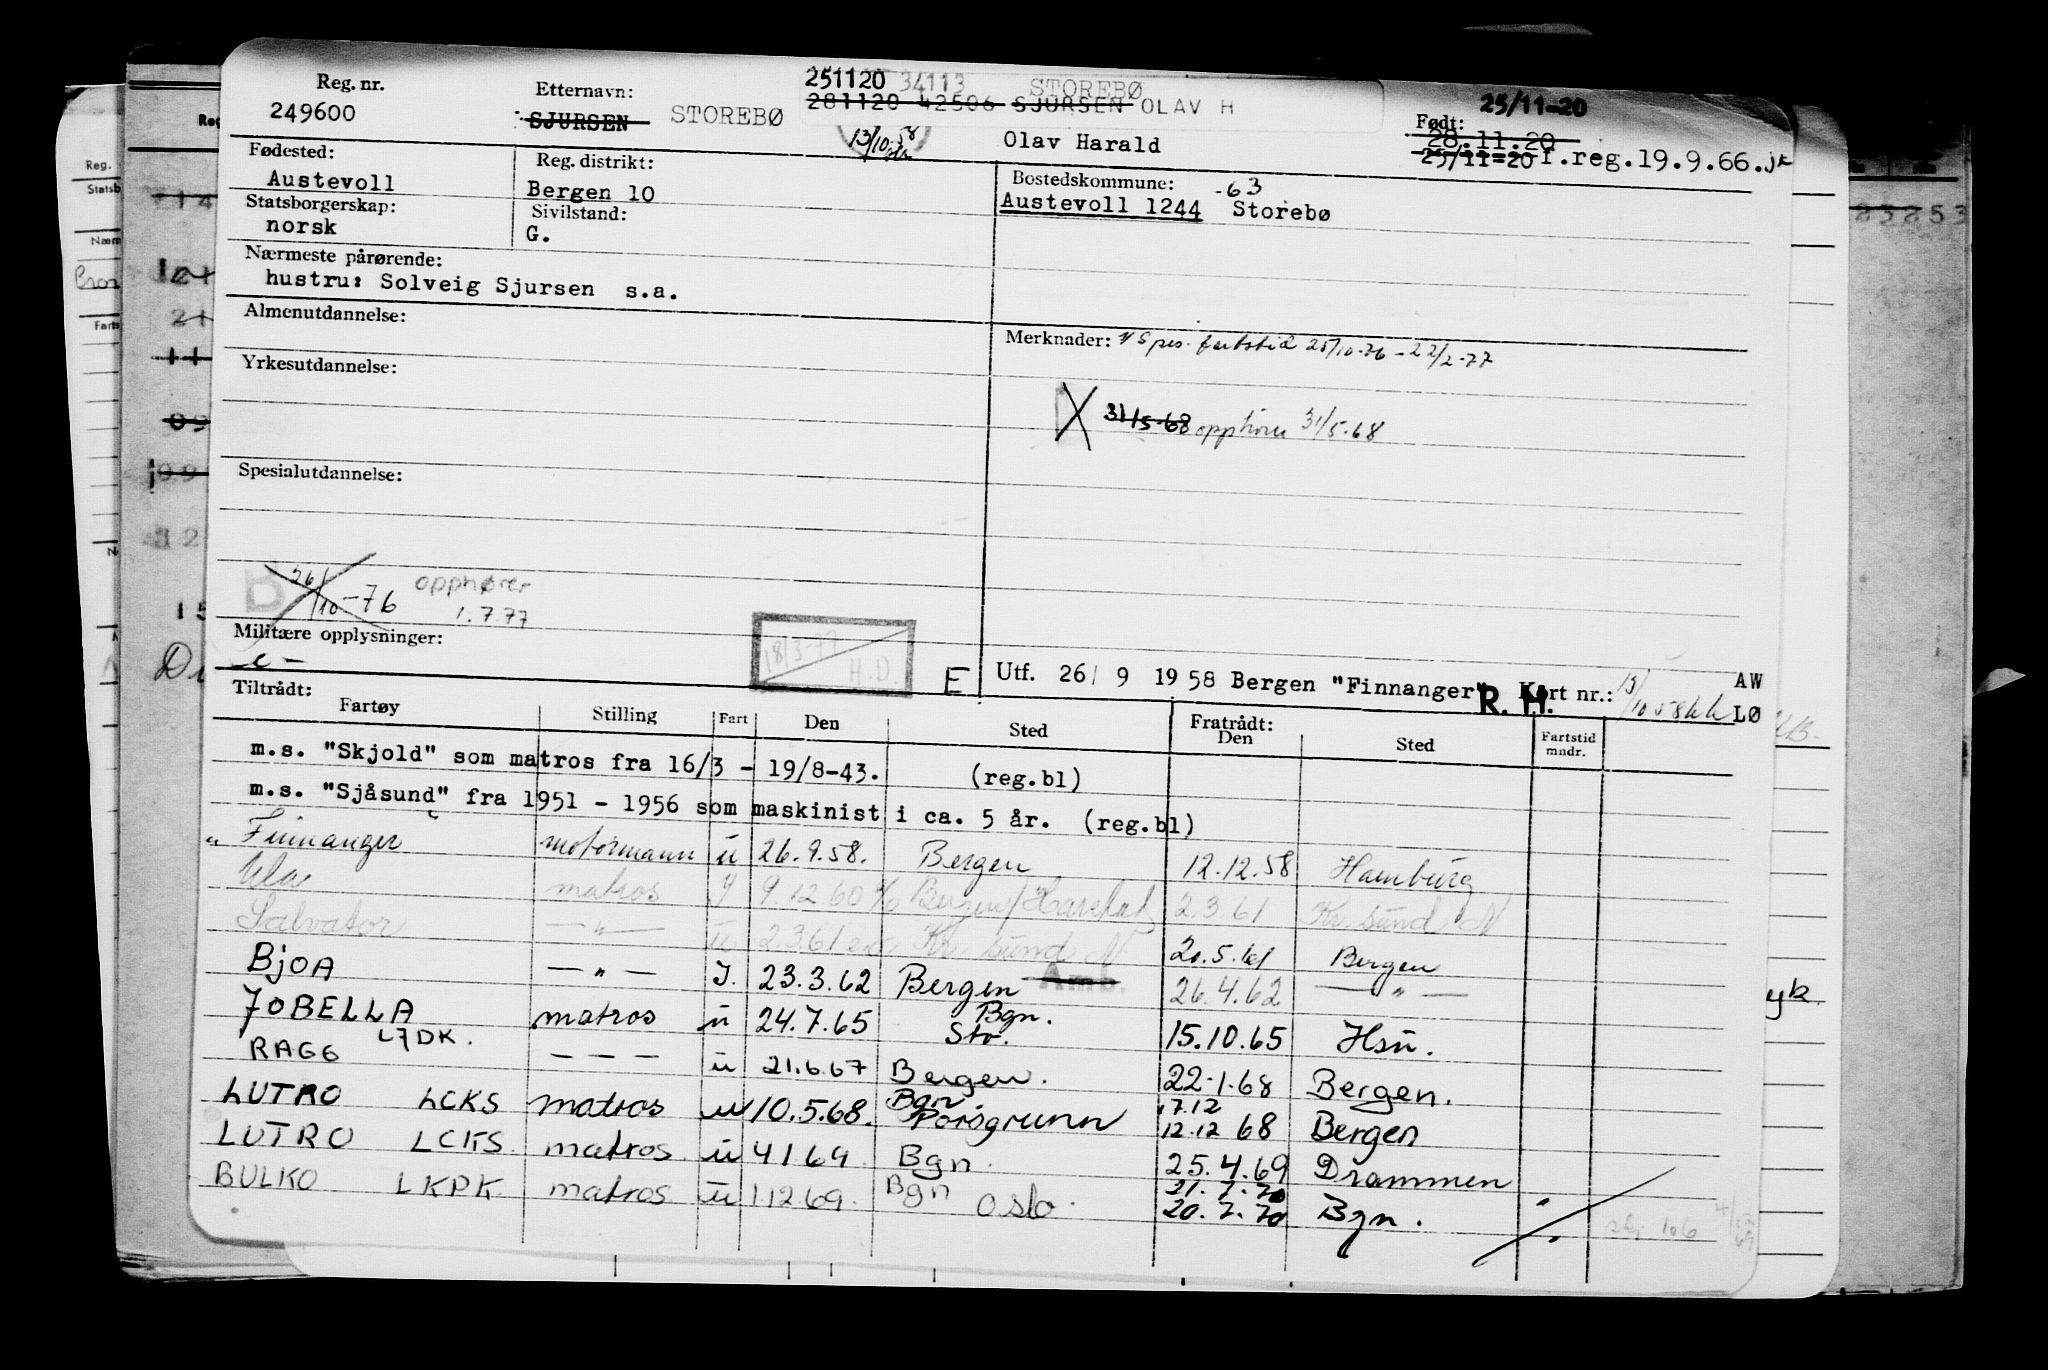 251120 34113 STOREBØ
281120 42506 SJURSEN OLAV H
Reg. nr. 249600
Etternavn: SJURSEN STOREBØ
13/10.58
Olav Harald
25/11-20
Født: 28.11.20
25/11-20 f.reg.19.9.66.jk
Fødested: Austevoll
Reg. distrikt: Bergen 10
Bostedskommune: -63
Austevoll 1244 Storebø
Statsborgerskap: norsk
Sivilstand: G.
Nærmeste pårørende:
hustru: Solveig Sjursen s.a.
Almenutdannelse:
Merknader: Spes. fartstid 25/10-76 - 22/2-77
Yrkesutdannelse:
31/5-68 opphører 31/5-68
Spesialutdannelse:
B 26/10-76 opphører 1.7.77
Militære opplysninger:
18/3-77 H.D
E
Utf. 26/ 9 1958 Bergen "Finnanger" R. H. Kort nr.: 13/10 58 AW LØ
Tiltrådt:
Fartøy Stilling Fart Den Sted Fratrådt: Den Sted Fartstid mndr.
m.s. "Skjold" som matros fra 16/3 - 19/8-43. (reg.bl)
m.s. "Sjåsund" fra 1951 - 1956 som maskinist i ca. 5 år. (reg.bl)
" Finnanger motormann u 26.9.58. Bergen 12.12.58 Hamburg
matros 9.12.60 Bergen/Harstad 2.3.61 Kr.sund N
Salvator — " — 2.3.61 Kr.sund N 20.5.61 Bergen
BJOA — " — J. 23.3.62 Bergen Amb. 26.4.62 — " —
JOBELLA matros u 24.7.65 Bgn. Sto. 15.10.65 Hsu.
RAGG LJDK. — — — u 21.6.67 Bergen. 22-1-68 Bergen.
LUTRO LCKS matros u 10.5.68. Bgn. Porsgrunn 17.12 12.12 68 Bergen
LUTRO LCKS matros u 4 1 69 Bgn. 25.4.69 Drammen
BULKO LKPK matros u 1 12 69. Bgn Oslo. 21.7.70 20.7.70 Bgn.